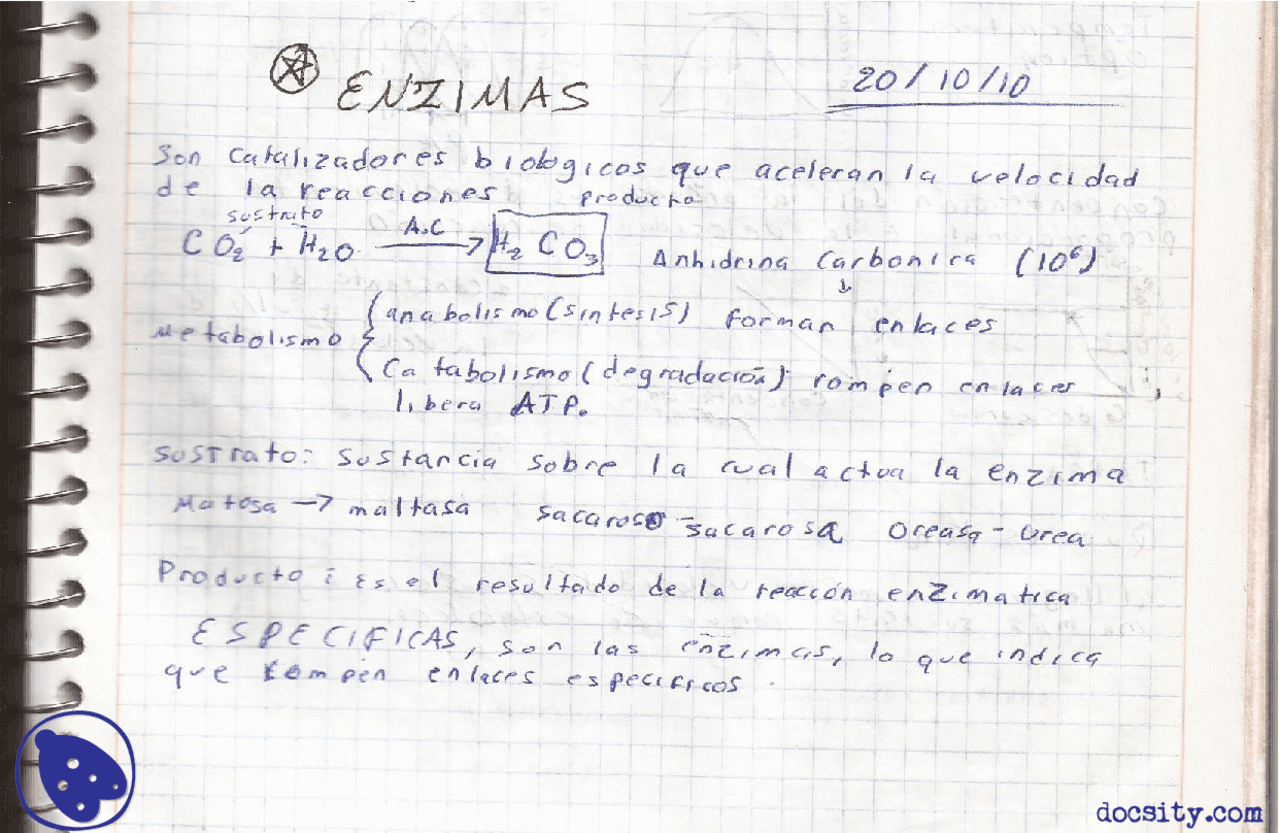 ENZIMAS
20/10/10
Son catalizadores biologicos que aceleran la velocidad
de la reacciones
producto
sustrato
CO2 + H2O A.C → H2CO3 Anhidrina Carbonica (10⁶)
↓
Metabolismo { anabolismo (sintesis) forman enlaces
Catabolismo (degradación) rompen enlaces,
libera ATP.
sustrato: sustancia sobre la cual actua la enzima
Matosa → maltasa sacarosa - sacarosa Oreasa - Urea
Producto: Es el resultado de la reacción enzimatica
ESPECIFICAS, son las enzimas, lo que indica
que rompen enlaces especificos.
docsity.com